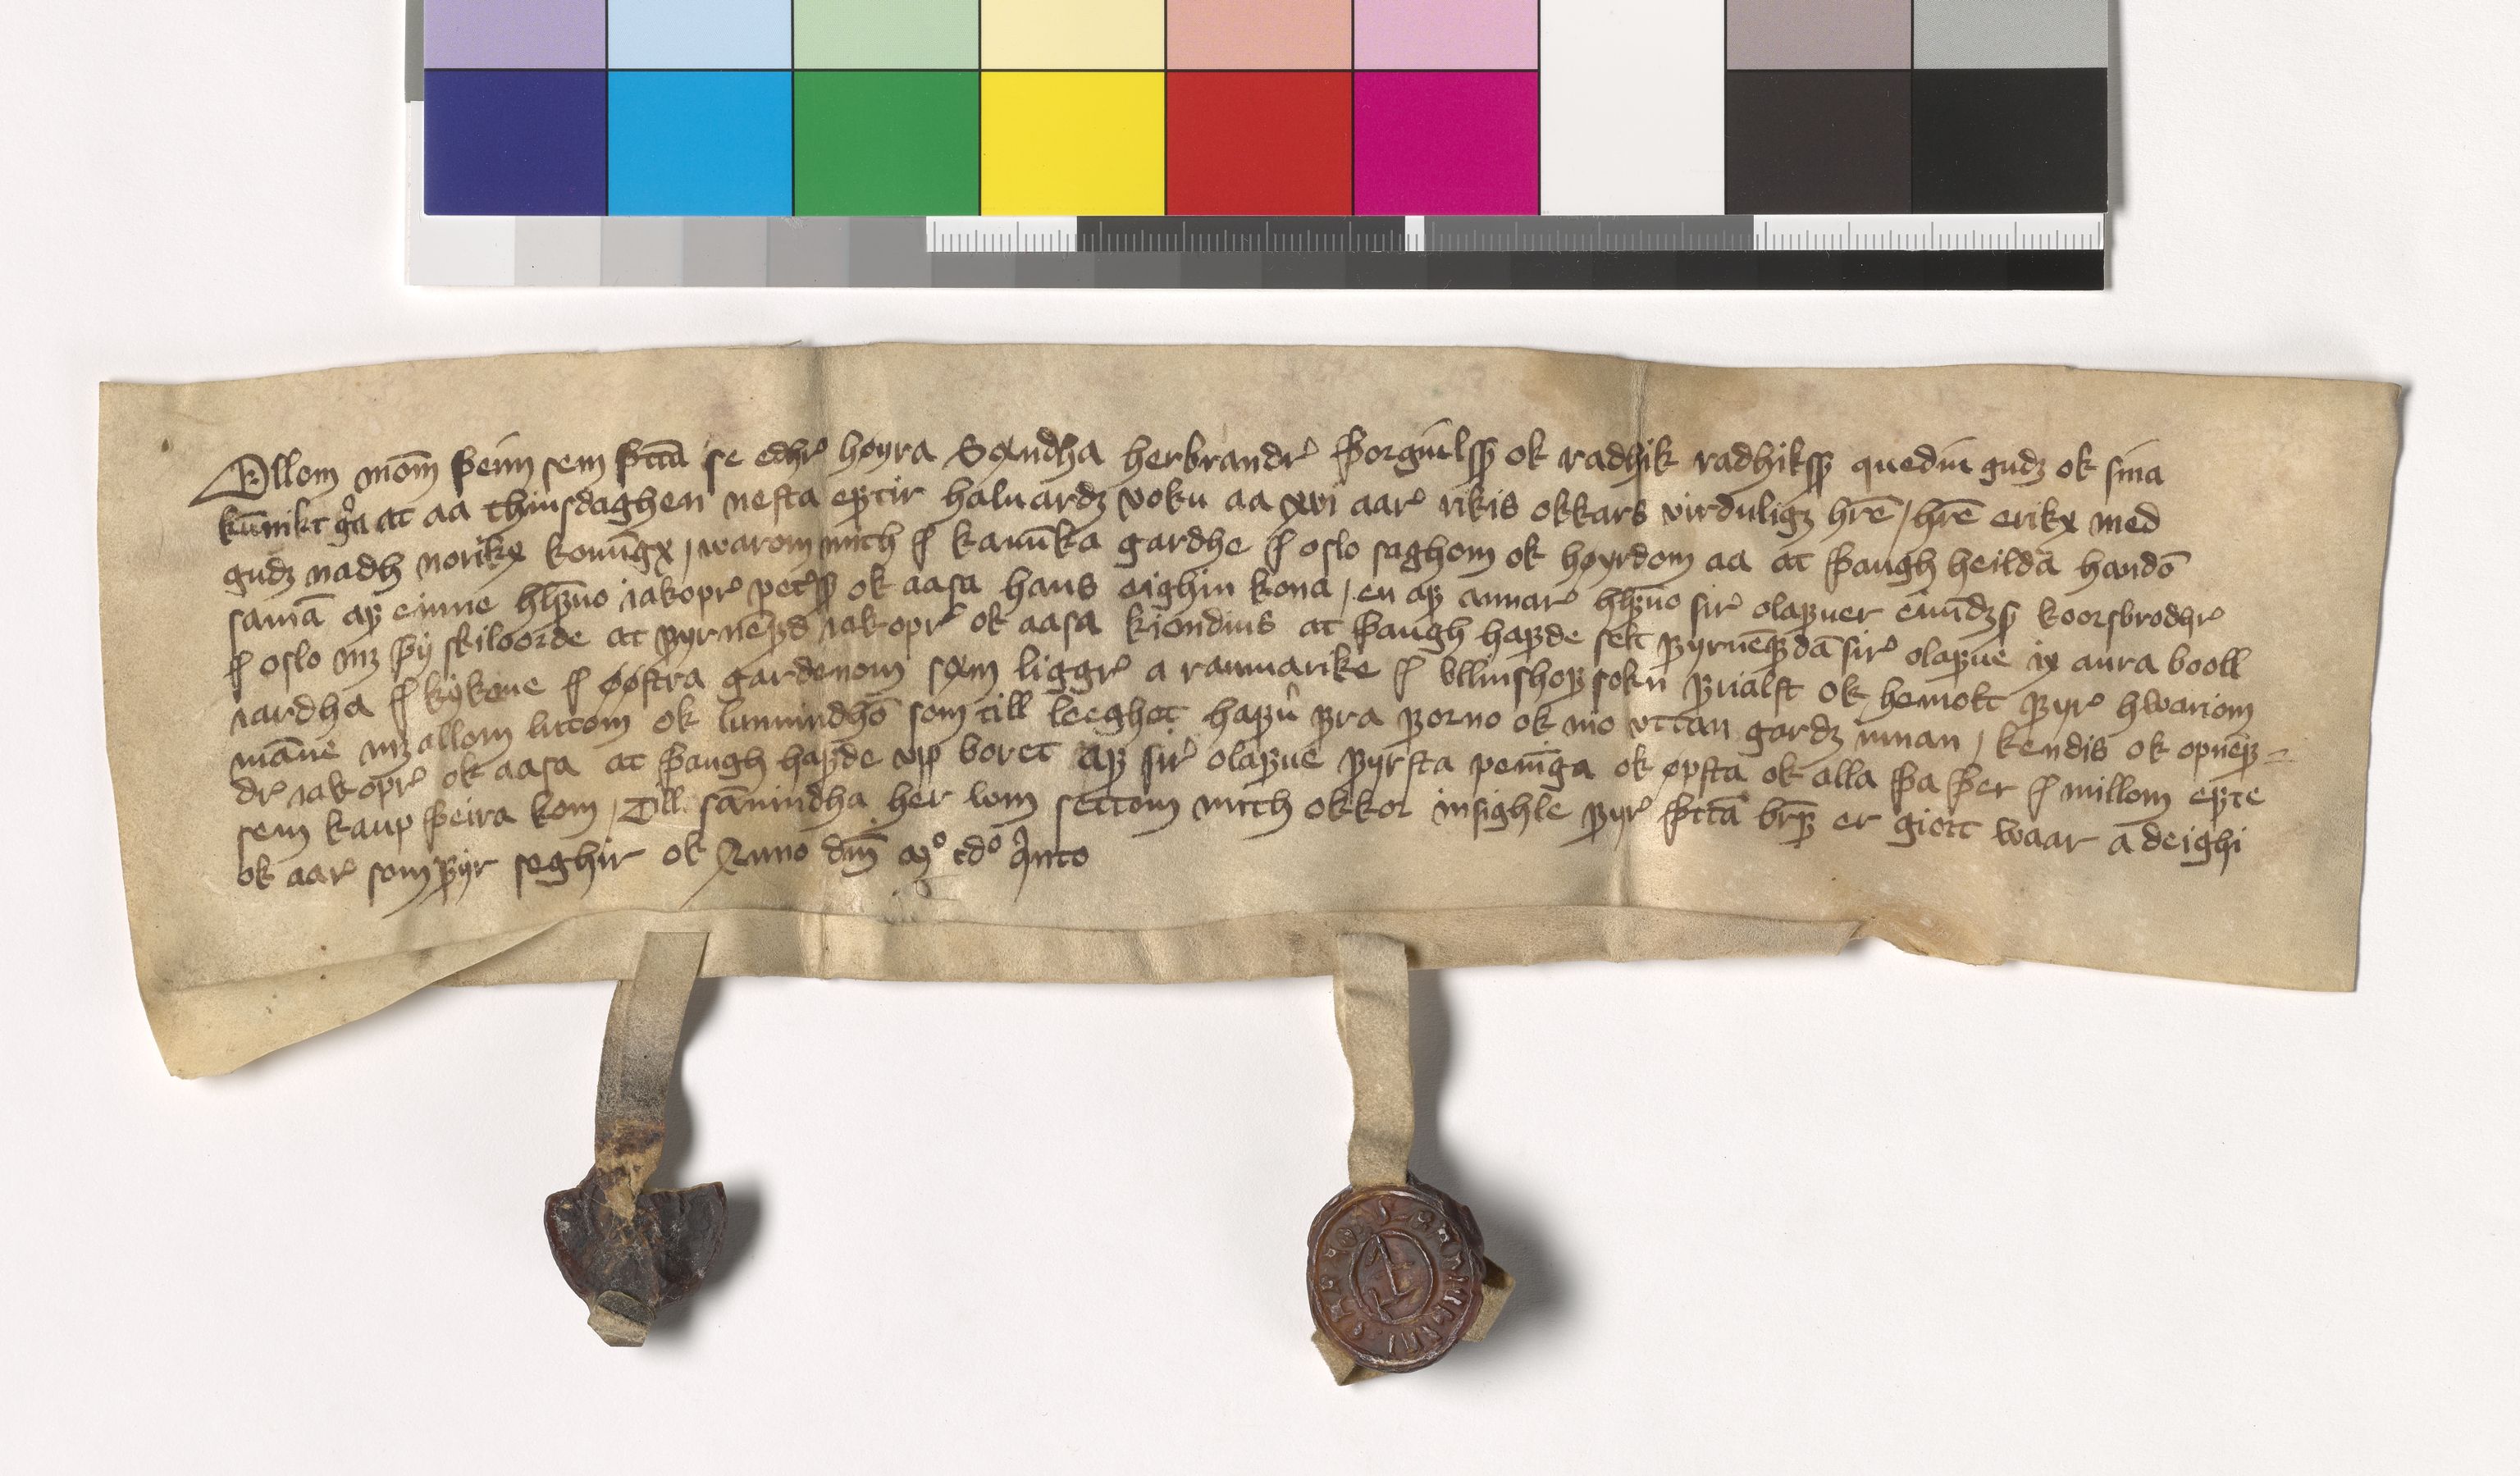 Ollom mōm þeim sem þttā se edhr høyra Søndha herbrandr þorgiulss̄ ok radhik radhikss̄ quediu gudz ok sina
kūnikt gͤa at aa thiusdaghen nesta eptir haluardz voku aa xvi aar rikis okkars virduligz hr̄e / hr̄e erikx med
gudz nadh norikx konūgx / warom mith j kanūka gardhe j oslo saghom ok høyrdom aa at þaugh heildā handō
samā aff einne hlffuo iakopr peterss̄ ok aasa hans eighin kona / en aff annar hlffuo sir olaffuer eiuīdzs̄ koorsbrodhr
j oslo mz þy skiloorde at ffyrneffd iakopr ok aasa kiondius at þaugh haffde selt ffyrnēffdā sir olaffue ix aura booll
iardha j kykene j øøstra gardenom søm liggr a raumarike j vllinshoff sokn ffrialst ok hemolt ffyr hwariom
māne mz allom luttom ok lunnindhō som till leeghet haffuͬ ffra fforno ok nio vttan gardz innan / kendis ok opnēff=
dr iakopr ok aasa at þaugh haffde vp boret aff sir olaffue ffyrsta penīga ok øpsta ok alla þa þer j millom epte
sem kaup þeira kom / Till sānindha her vm settom mith okkor insighle ffyr þttā brff er giort waar a deighi
ok aar som ffyr seghir ok Anno dm̄ mͦ cdͦ qͥnto